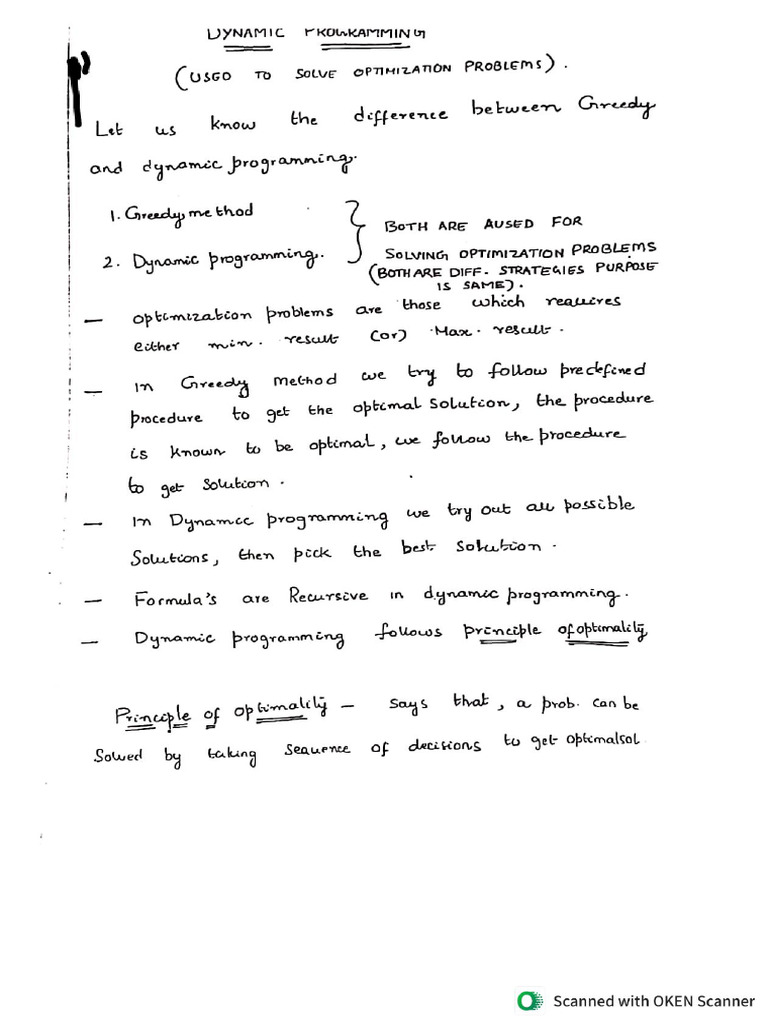 DYNAMIC PROGRAMMING
(USED TO SOLVE OPTIMIZATION PROBLEMS).
Let us know the difference between Greedy
and dynamic programming.
1. Greedy method
2. Dynamic programming.
BOTH ARE AUSED FOR
SOLVING OPTIMIZATION PROBLEMS
(BOTH ARE DIFF. STRATEGIES PURPOSE
IS SAME).
— optimization problems are those which requires
either min. result (or) Max. result.
— In Greedy method we try to follow predefined
procedure to get the optimal solution, the procedure
is known to be optimal, we follow the procedure
to get solution.
— In Dynamic programming we try out all possible
Solutions, then pick the best solution.
— Formula's are Recursive in dynamic programming.
— Dynamic programming follows principle of optimality
Principle of optimality — says that, a prob. can be
Solved by taking sequence of decisions to get optimal sol
Scanned with OKEN Scanner